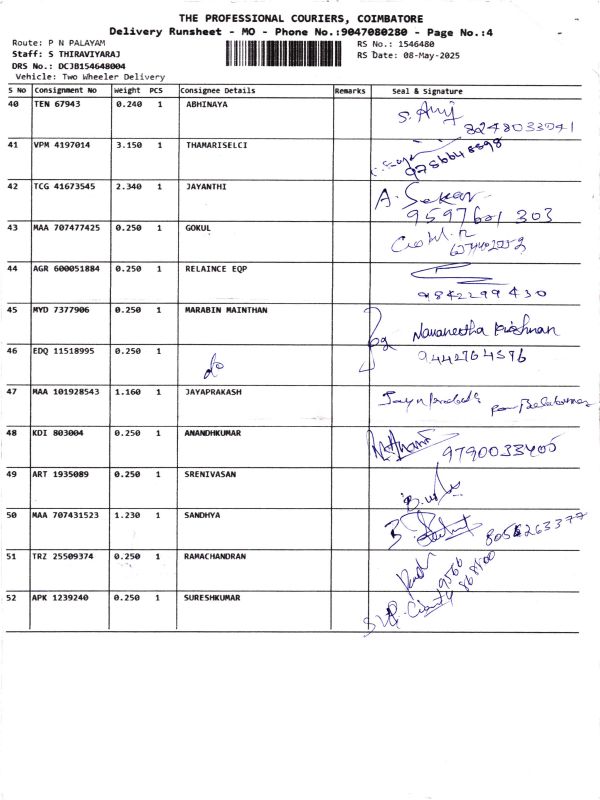 THE PROFESSIONAL COURIERS, COIMBATORE
Delivery Runsheet - MO - Phone No.:9047080280 - Page No.:4
Route: P N PALAYAM
RS No.: 1546480
Staff: S THIRAVIYARAJ
RS Date: 08-May-2025
DRS No.: DCJB154648004
Vehicle: Two Wheeler Delivery
S No Consignment No Weight PCS Consignee Details Remarks Seal & Signature
40 TEN 67943 0.240 1 ABHINAYA
8248033041
41 VPM 4197014 3.150 1 THAMARISELCI
42 TCG 41673545 2.340 1 JAYANTHI A. Sekar
9597601 303
43 MAA 707477425 0.250 1 GOKUL
44 AGR 600051884 0.250 1 RELAINCE EQP
9842299430
45 MYD 7377906 0.250 1 MARABIN MAINTHAN Navaneetha Krishnan
46 EDQ 11518995 0.250 1 do 9442764576
47 MAA 101928543 1.160 1 JAYAPRAKASH
48 KDI 803004 0.250 1 ANANDHKUMAR 9790033405
49 ART 1935089 0.250 1 SRENIVASAN
50 MAA 707431523 1.230 1 SANDHYA
51 TRZ 25509374 0.250 1 RAMACHANDRAN
52 APK 1239240 0.250 1 SURESHKUMAR